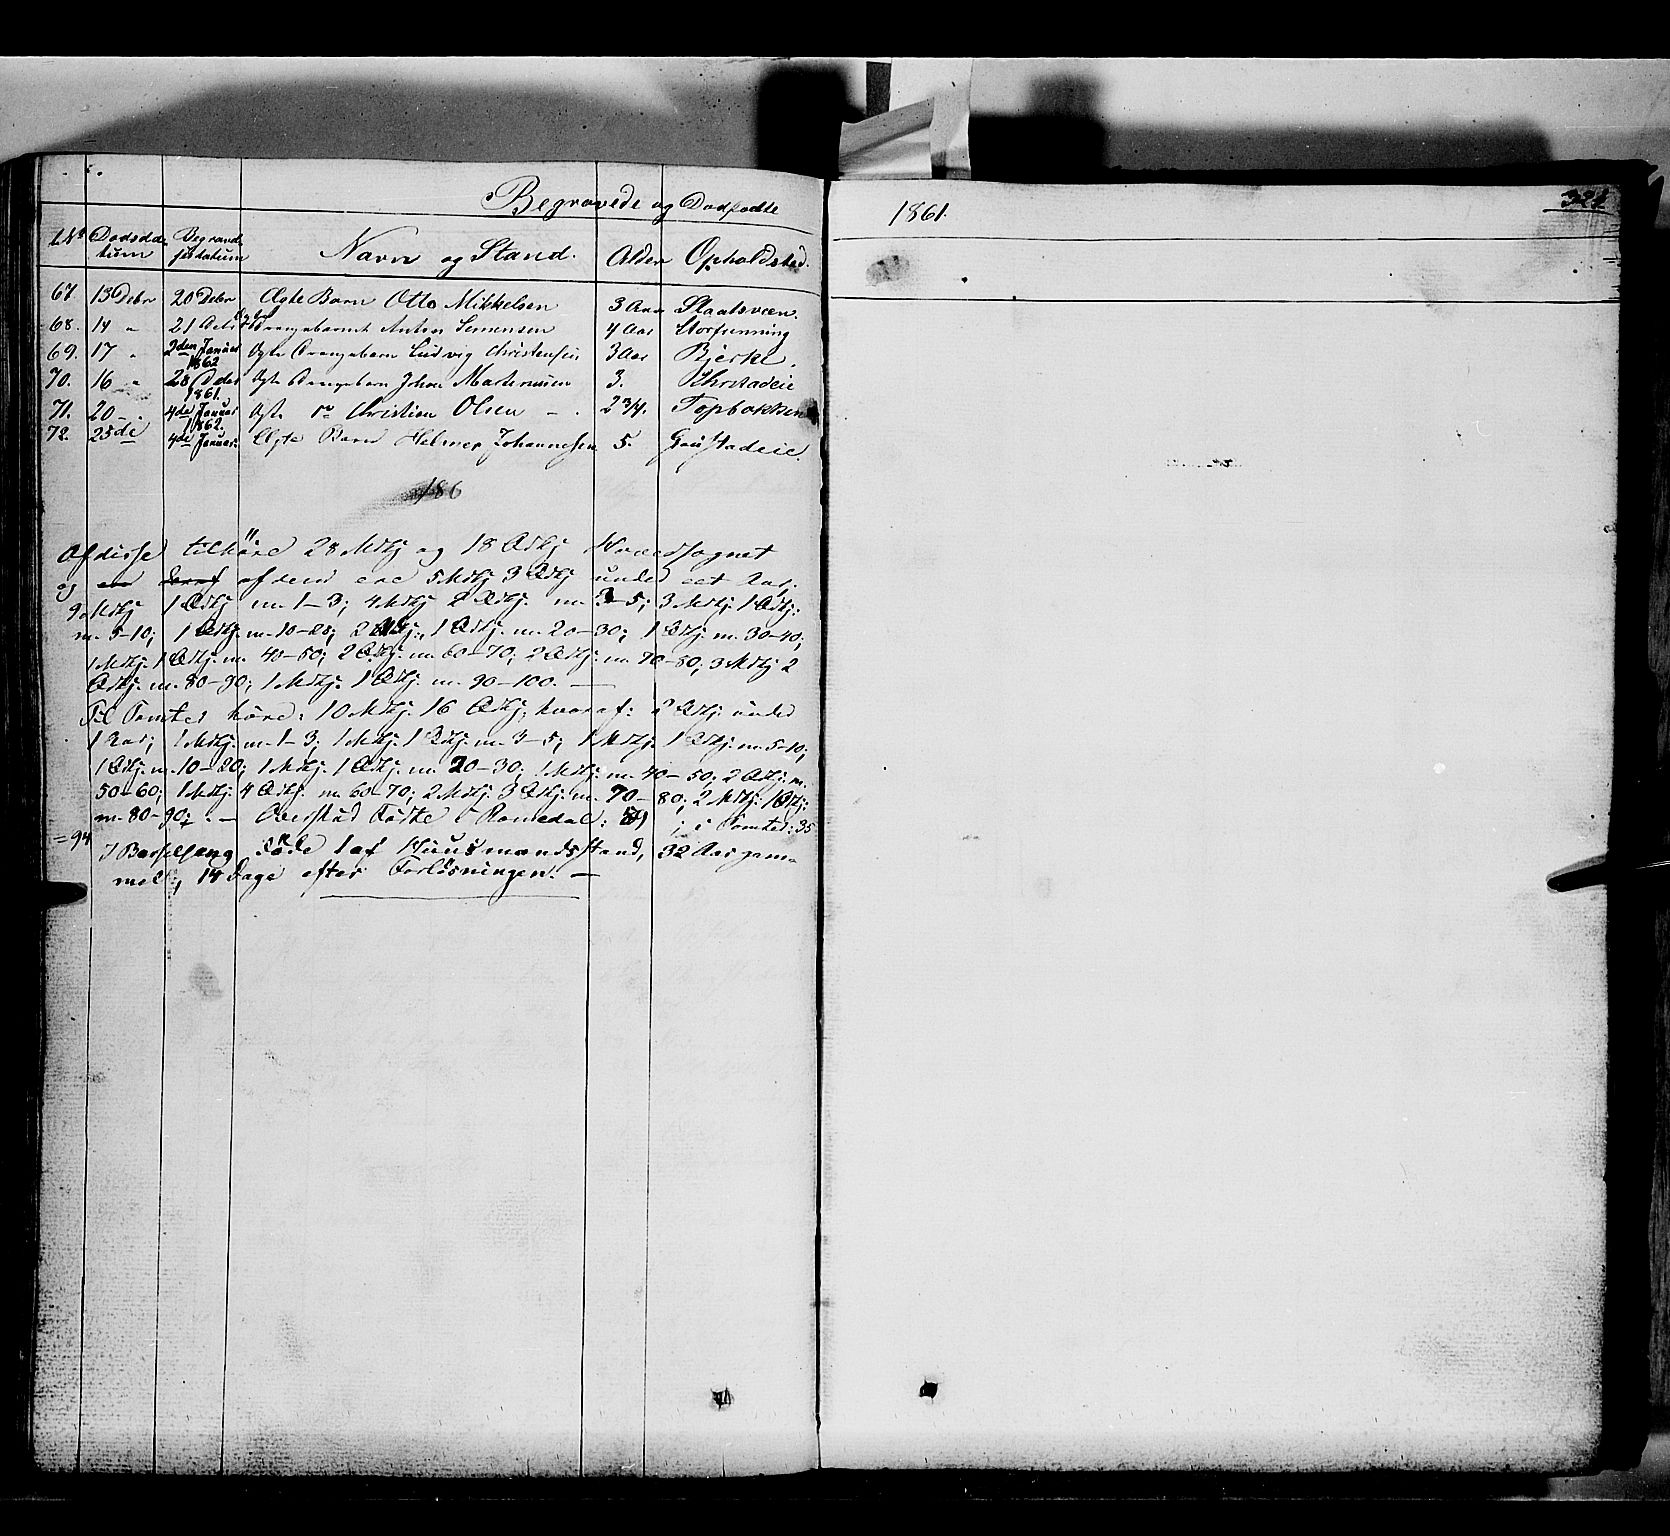 Begravede og Dødfødte 1861. 321
No Dødsda- Begravel- Navn og Stand. Alder Opholdsted.
tum sesdatum
67. 13 Debr 20 Debr Ægte Barn Otto Mikkelsen 3 Aar Staatsveen.
68. 14 " 21 Debr Uægte Drengebarnet Anton Simensen 4 Aar Storfunning
69. 17 " 2den Januar 1862 Ægte Drengebarn Ludvig Christensen 3 Aar Bjerke.
70. 16 " 28 Debr 1861. Ægte Drengebarn Johan Martinusen 3.
71. 20 - 4de Januar 1862. Ægte do Christian Olsen - 2 3/4. Topbakken
72. 25de 4de Januar: Ægte Barn Helmer Johannesen 5. Gaustadeie.
186
Af disse tilhøre 28 Mdkj og 18 Qdkj Hovedsognet
og deraf af dem ere 5 Mdkj 3 Qdkj under eet Aar;
9 Mdkj 1 Qdkj m. 1-3; 4 Mdkj 2 Qdkj. m. 3-5; 3 Mdkj 1 Qdkj:
m. 5-10; 1 Qdkj m. 10-20; 2 Mdkj., 1 Qdkj. m. 20-30; 1 Qdkj m. 30-40;
1 Mdkj. 1 Qdkj. m. 40-50; 2 Qdkj. m. 60-70; 2 Qdkj. m. 70-80; 3 Mdkj 2
Qdkj. m. 80-90; 1 Mdkj. 1 Qdkj. m. 90-100. —
Til Tomter høre: 10 Mdkj. 16 Qdkj, hvoraf: 2 Qdkj under
1 Aar; 1 Mdkj. m. 1-3; 1 Mdkj. 1 Qdkj. m. 3-5; 1 Mdkj. 1 Qdkj. m. 5-10;
1 Qdkj. m. 10-20; 1 Mdkj. 1 Qdkj. m. 20-30; 1 Mdkj. m. 40-50; 2 Qdkj. m.
50-60; 1 Mdkj 4 Qdkj. m. 60-70; 2 Mdkj. 3 Qdkj. m. 70-80; 2 Mdkj. 1 Qdkj:
m. 80-90; — Overskud Fødte i Romedal: 59; i Tomter: 35
=94
I Barselseng døde 1 af Huusmandsstand, 32 Aar gam-
mel, 14 Dage efter Forløsningen. —